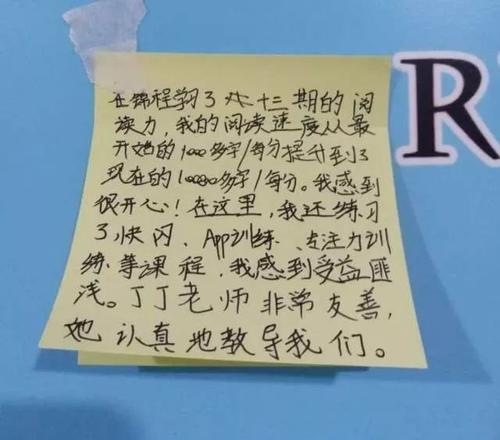 在锦程学了六十三期的阅
读力,我的阅读速度从最
开始的1000多字/每分提升到了
现在的10000多字/每分。我感到
很开心!在这里,我还练习
了快闪、App训练、专注力训
练等课程,我感到受益匪
浅。丁丁老师非常友善,
她认真地教导我们。
R